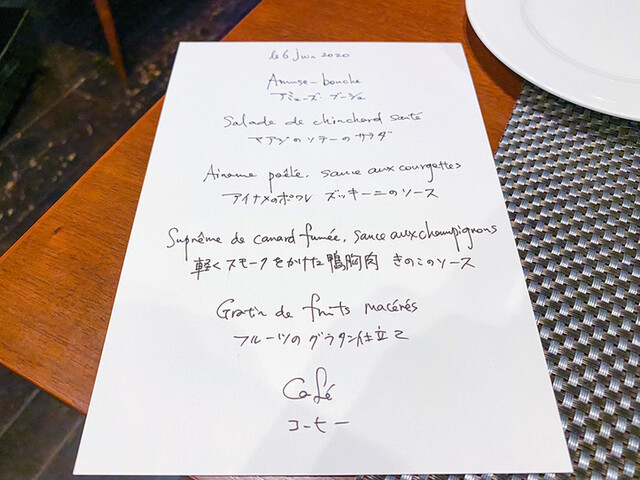 le 6 Juin 2020
Amuse-bouche
アミューズ ブーシュ
Salade de chinchard sauté
マアジのソテーのサラダ
Ainame poêlé, sauce aux courgettes
アイナメのポワレ ズッキーニのソース
Suprême de canard fumée, sauce aux champignons
軽くスモークをかけた鴨胸肉 きのこのソース
Gratin de fruits macérés
フルーツのグラタン仕立て
Café
コーヒー